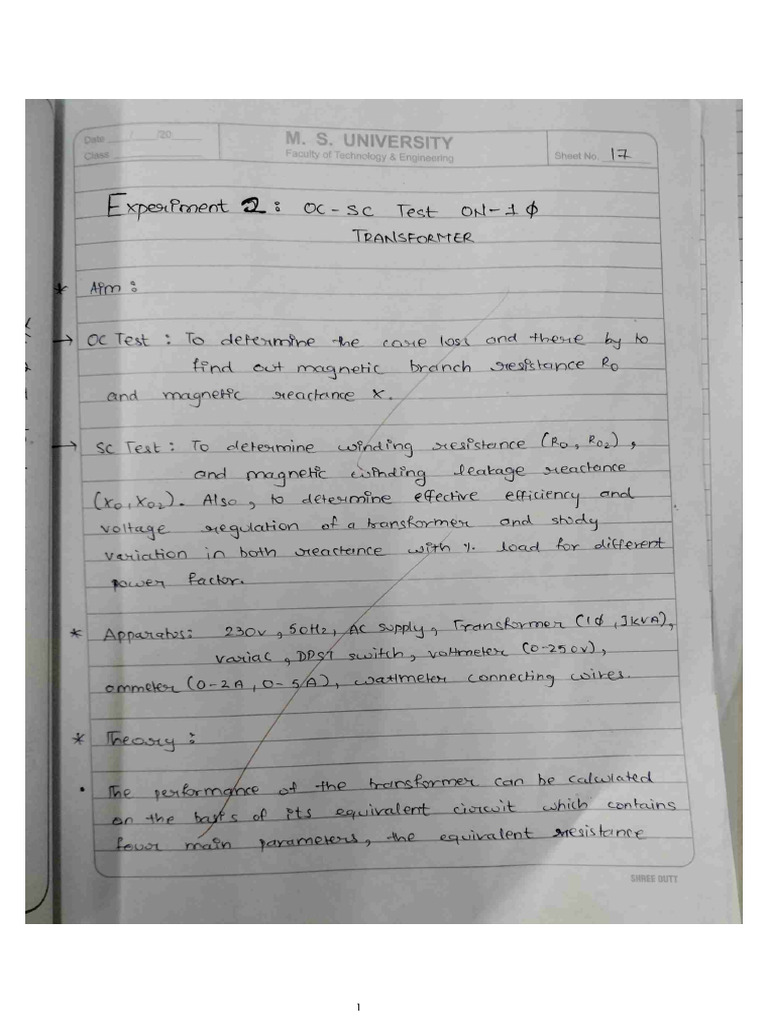 Date / /20
M. S. UNIVERSITY
Class
Faculty of Technology & Engineering
Sheet No. 17
Experiment 2 : OC - SC Test ON - 1 ϕ
TRANSFORMER
* Aim :
→ OC Test : To determine the core loss and there by to
find out magnetic branch resistance R0
and magnetic reactance X.
→ SC Test : To determine winding resistance (R0, R02),
and magnetic winding leakage reactance
(X0, X02). Also, to determine effective efficiency and
voltage regulation of a transformer and study
variation in both reactance with % load for different
power factor.
* Apparatus: 230V, 50Hz, AC supply, Transformer (1ϕ, 3kVA),
variac, DPST switch, voltmeter (0-250V),
ammeter (0-2A, 0-5A), wattmeter connecting wires.
* Theory :
• The performance of the transformer can be calculated
on the basis of its equivalent circuit which contains
four main parameters, the equivalent resistance
SHREE DUTT
1